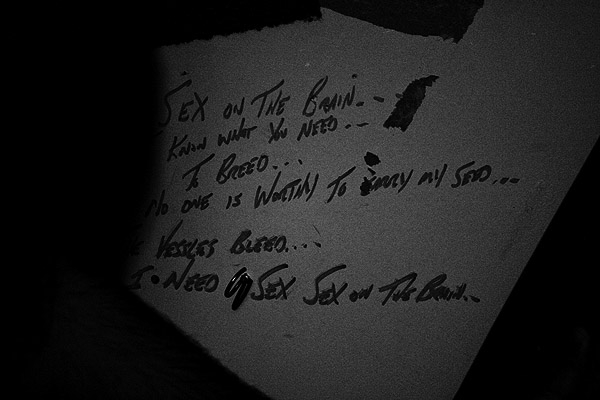 SEX ON THE BRAIN--
KNOW WHAT YOU NEED---
TO BREED...
NO ONE IS WORTHY TO CARRY MY SEED...
VESSLES BLEED....
I NEED SEX SEX ON THE BRAIN..